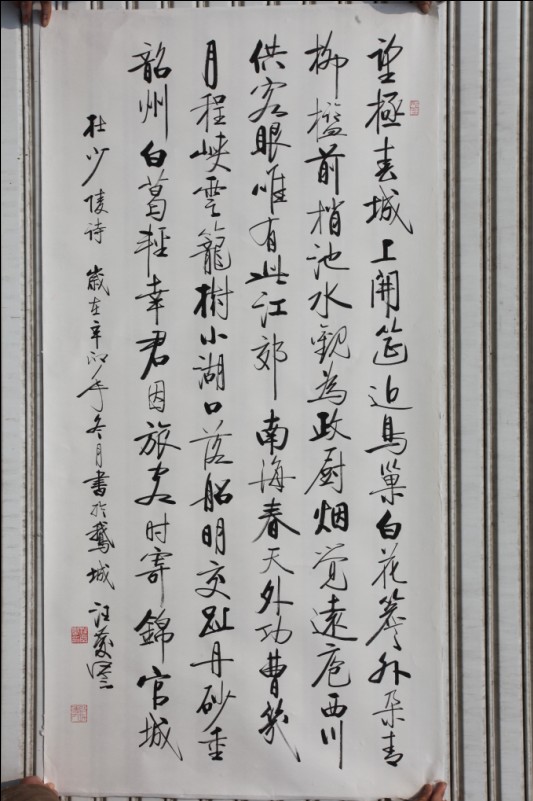 望極春城上開筵近鳥巢白花簷外朵青
柳檻前梢池水觀為政厨烟覺遠庖西川
供客眼唯有此江郊南海春天外功曹幾
月程峽雲籠樹小湖口落船明交趾丹砂重
韶州白葛輕幸君因旅客时寄錦官城
杜少陵诗 歲在辛卯年冬月書於鵝城 汪